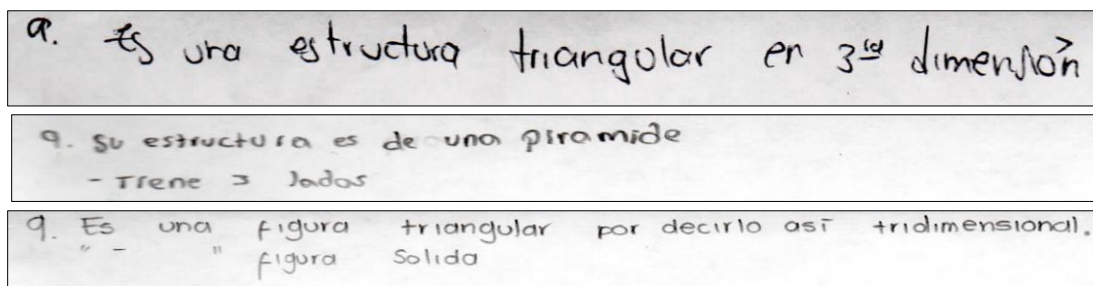 a. Es una estructura triangular en 3ra dimensión
9. Su estructura es de una piramide
- Tiene 3 lados
9. Es una figura triangular por decirlo así tridimensional.
" - " figura Solida